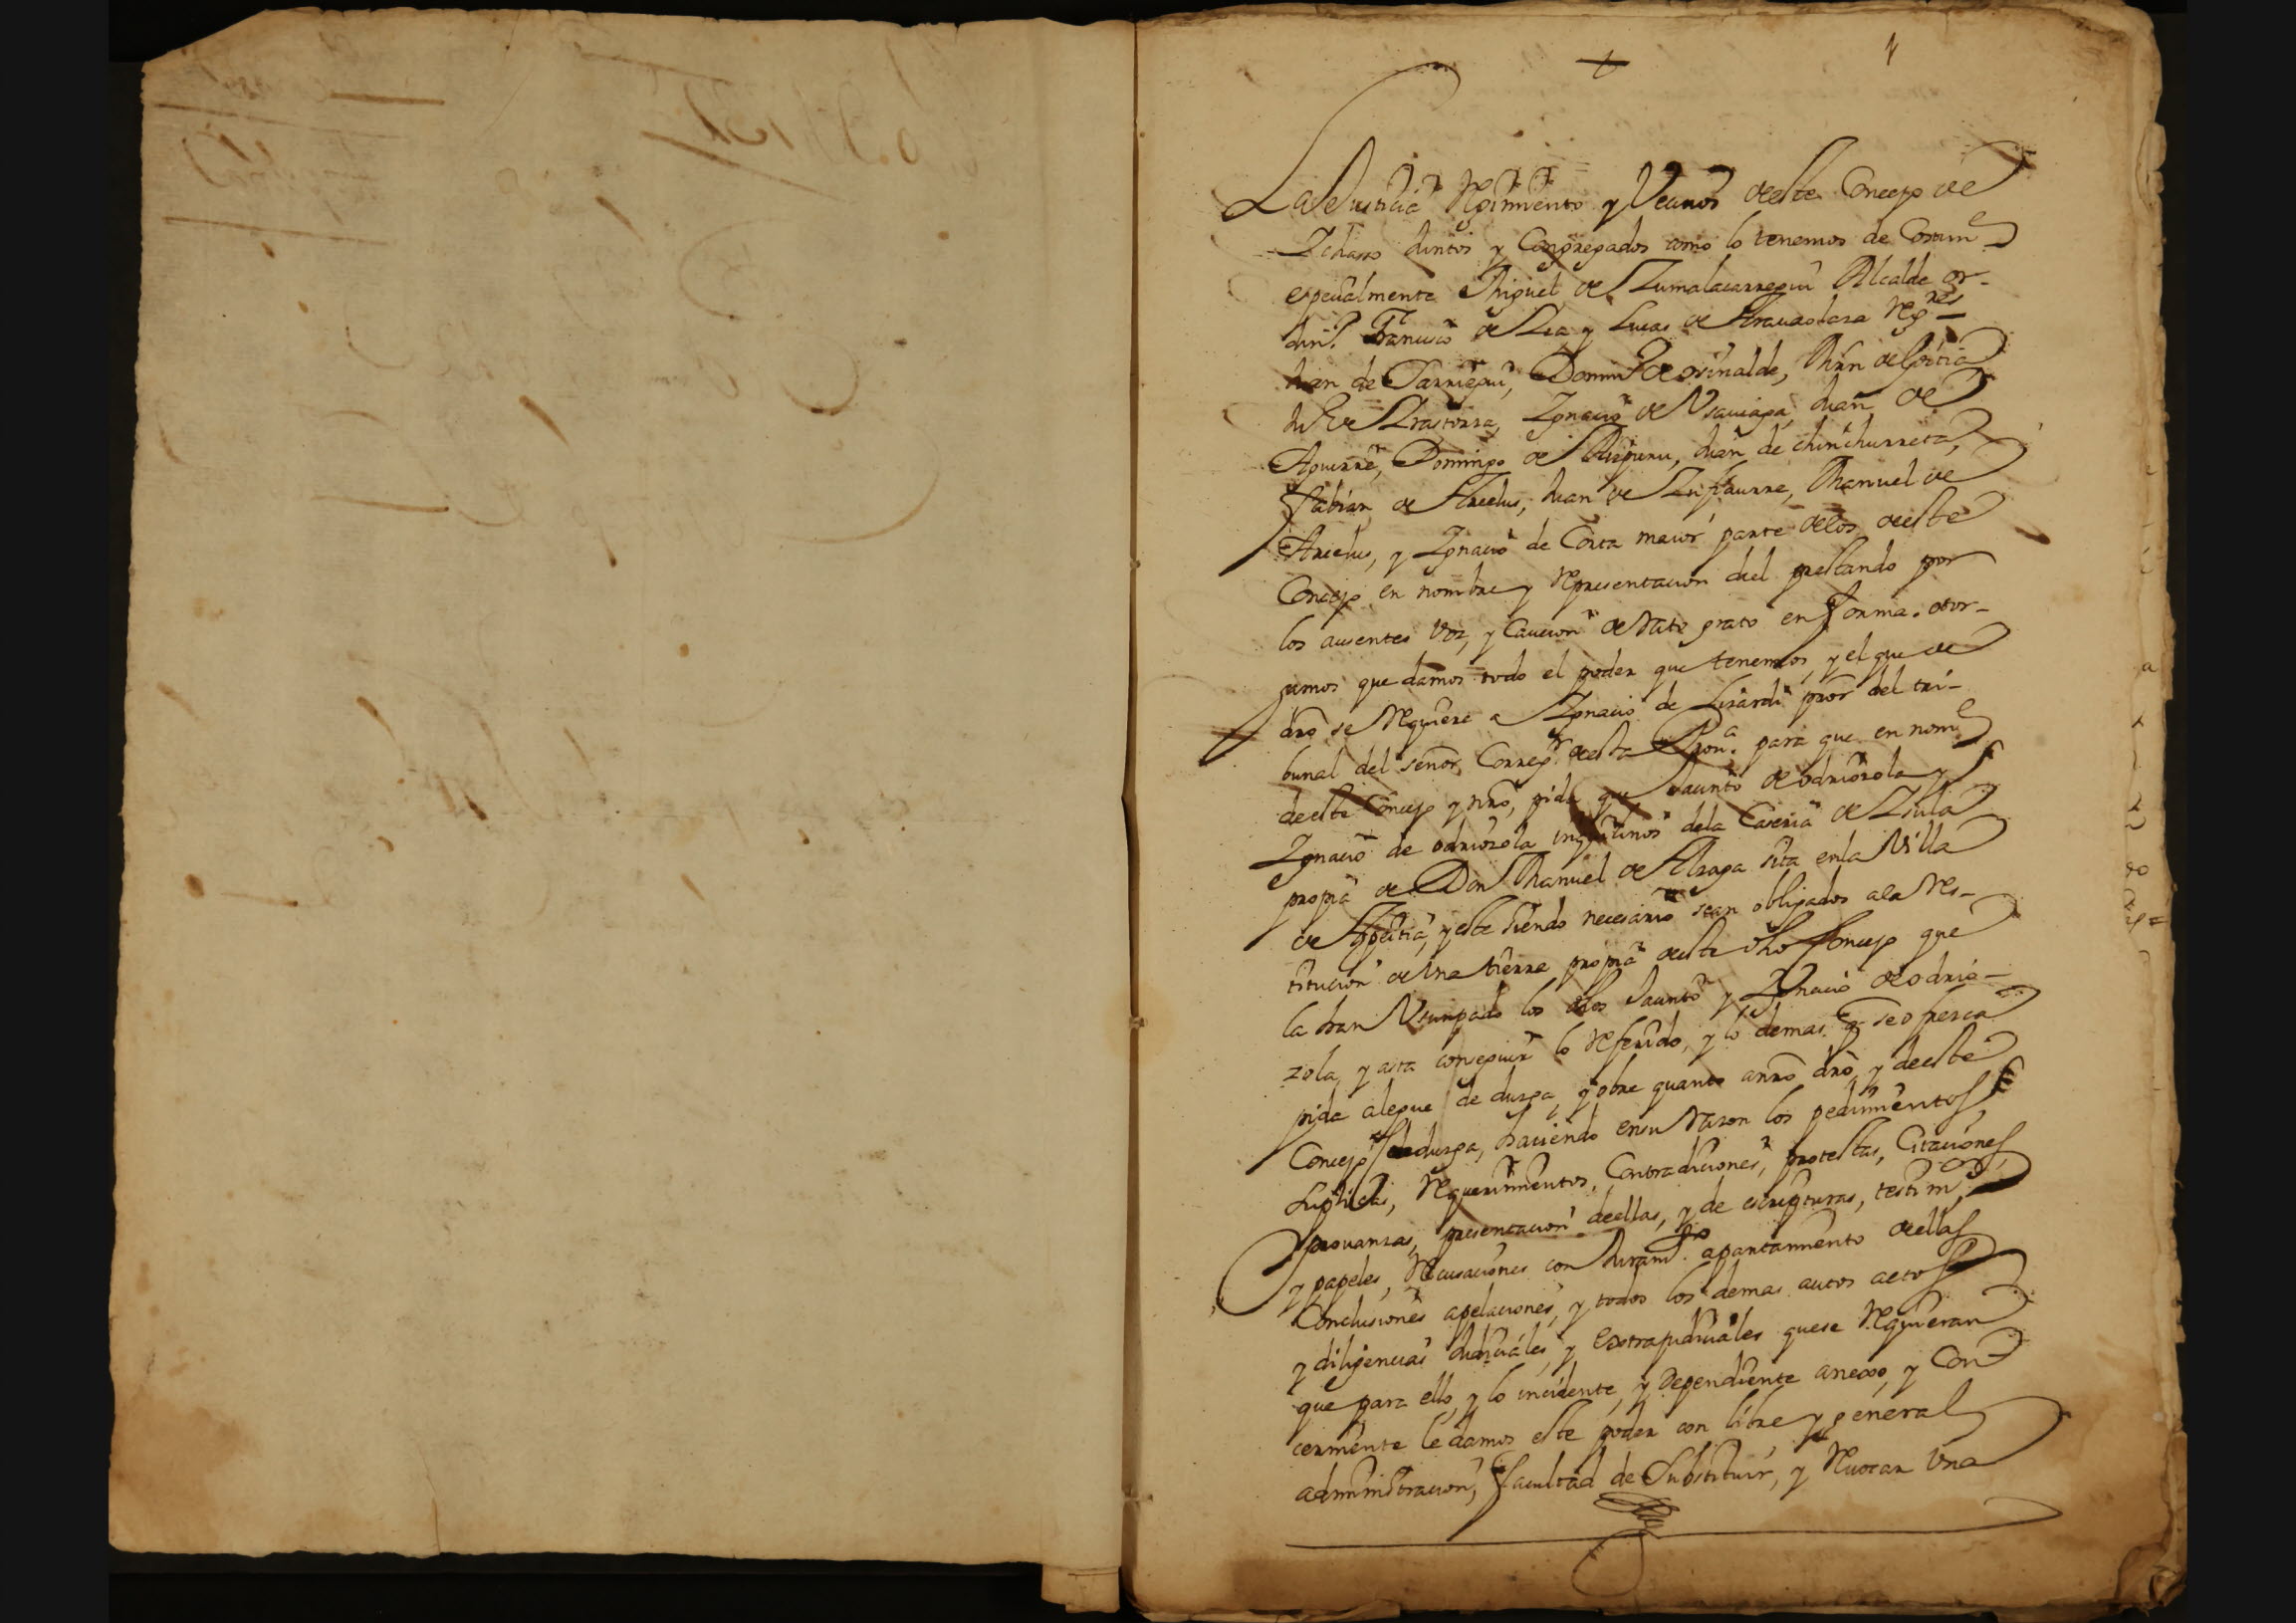 1
La Justicia Regimiento y Vecinos deeste Concejo de
Ydiazs Juntos y Congregados como lo tenemos de Costum
especialmente Miguel de Zumalacarregui Alcalde or-
din.º Francisco de Lea y Lucas de Arauaolaza reg.res
Juan de Jarriegui, Domin.º de orinalde, Mrn de Goitia
Ju.º de Yrastorza, Ygnacio de Vsauiaga, Juan de
Aguirre, Domingo de Aizpuru, Juan de chinchurreta,
Fabian de Arcelus, Juan de Yrizaurre, Manuel de
Arcelus, y Ygnacio de Corta maior parte delos deeste
Concejo en nombre y representacion del prestando por
los ausentes voz, y Caucion de rato grato en forma. otor-
gamos que damos todo el poder que tenemos, y el que de
dro se requiere a Ygnacio de Lizardi pror del tri-
bunal del señor Correg.r deesta Prou.a para que en nom
deeste Concejo y nro, pida que Jacinto de odriozola y
Ygnacio de odriozola inquilinos dela Caseria de Ysula
propia de Don Manuel de Alzaga sita enla Villa
de Azpeitia, y este siendo necesario sean obligados ala res-
titucion de vna tierra propia deeste dho Concejo que
la han Vsurpado los dhos Jacinto y Ygnacio de odrio-
zola, y asta conseguir lo referido, y lo demas q se ofresca
pida alegue de durga, y obre quanto anro dro, y deeste
Concejo durga, haciendo ensu razon los pedimientos
suplicas, requerimientos, Contradiciones, protestas, Citaciones,
prouanzas, presentacion deellas, y de escripturas, testim.º
y papeles, recusaciones con Juram.to apartamiento deellas
Conclusiones apelaciones, y todos los demas autos actos
y diligencias Judiciales, y Extrajudiciales quese requieran
que para ello, y lo incidente, y dependiente anexo, y Con
cerniente le damos este poder con libre y general
administracion, facultad de Substituir, y reuocar vna